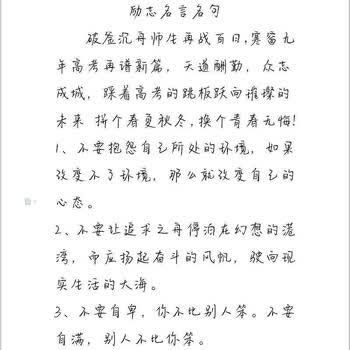 励志名言名句
破釜沉舟师生再战百日,寒窗九
年高考再谱新篇, 天道酬勤, 众志
成城, 踩着高考的跳板跃向璀璨的
未来 拼个春夏秋冬,换个青春无悔!
1、不要抱怨自己所处的环境, 如果
改变不了环境, 那么就改变自己的
心态。
2、不要让追求之舟停泊在幻想的港
湾, 而应扬起奋斗的风帆, 驶向现
实生活的大海。
3、不要自卑, 你不比别人笨。不要
自满, 别人不比你笨。